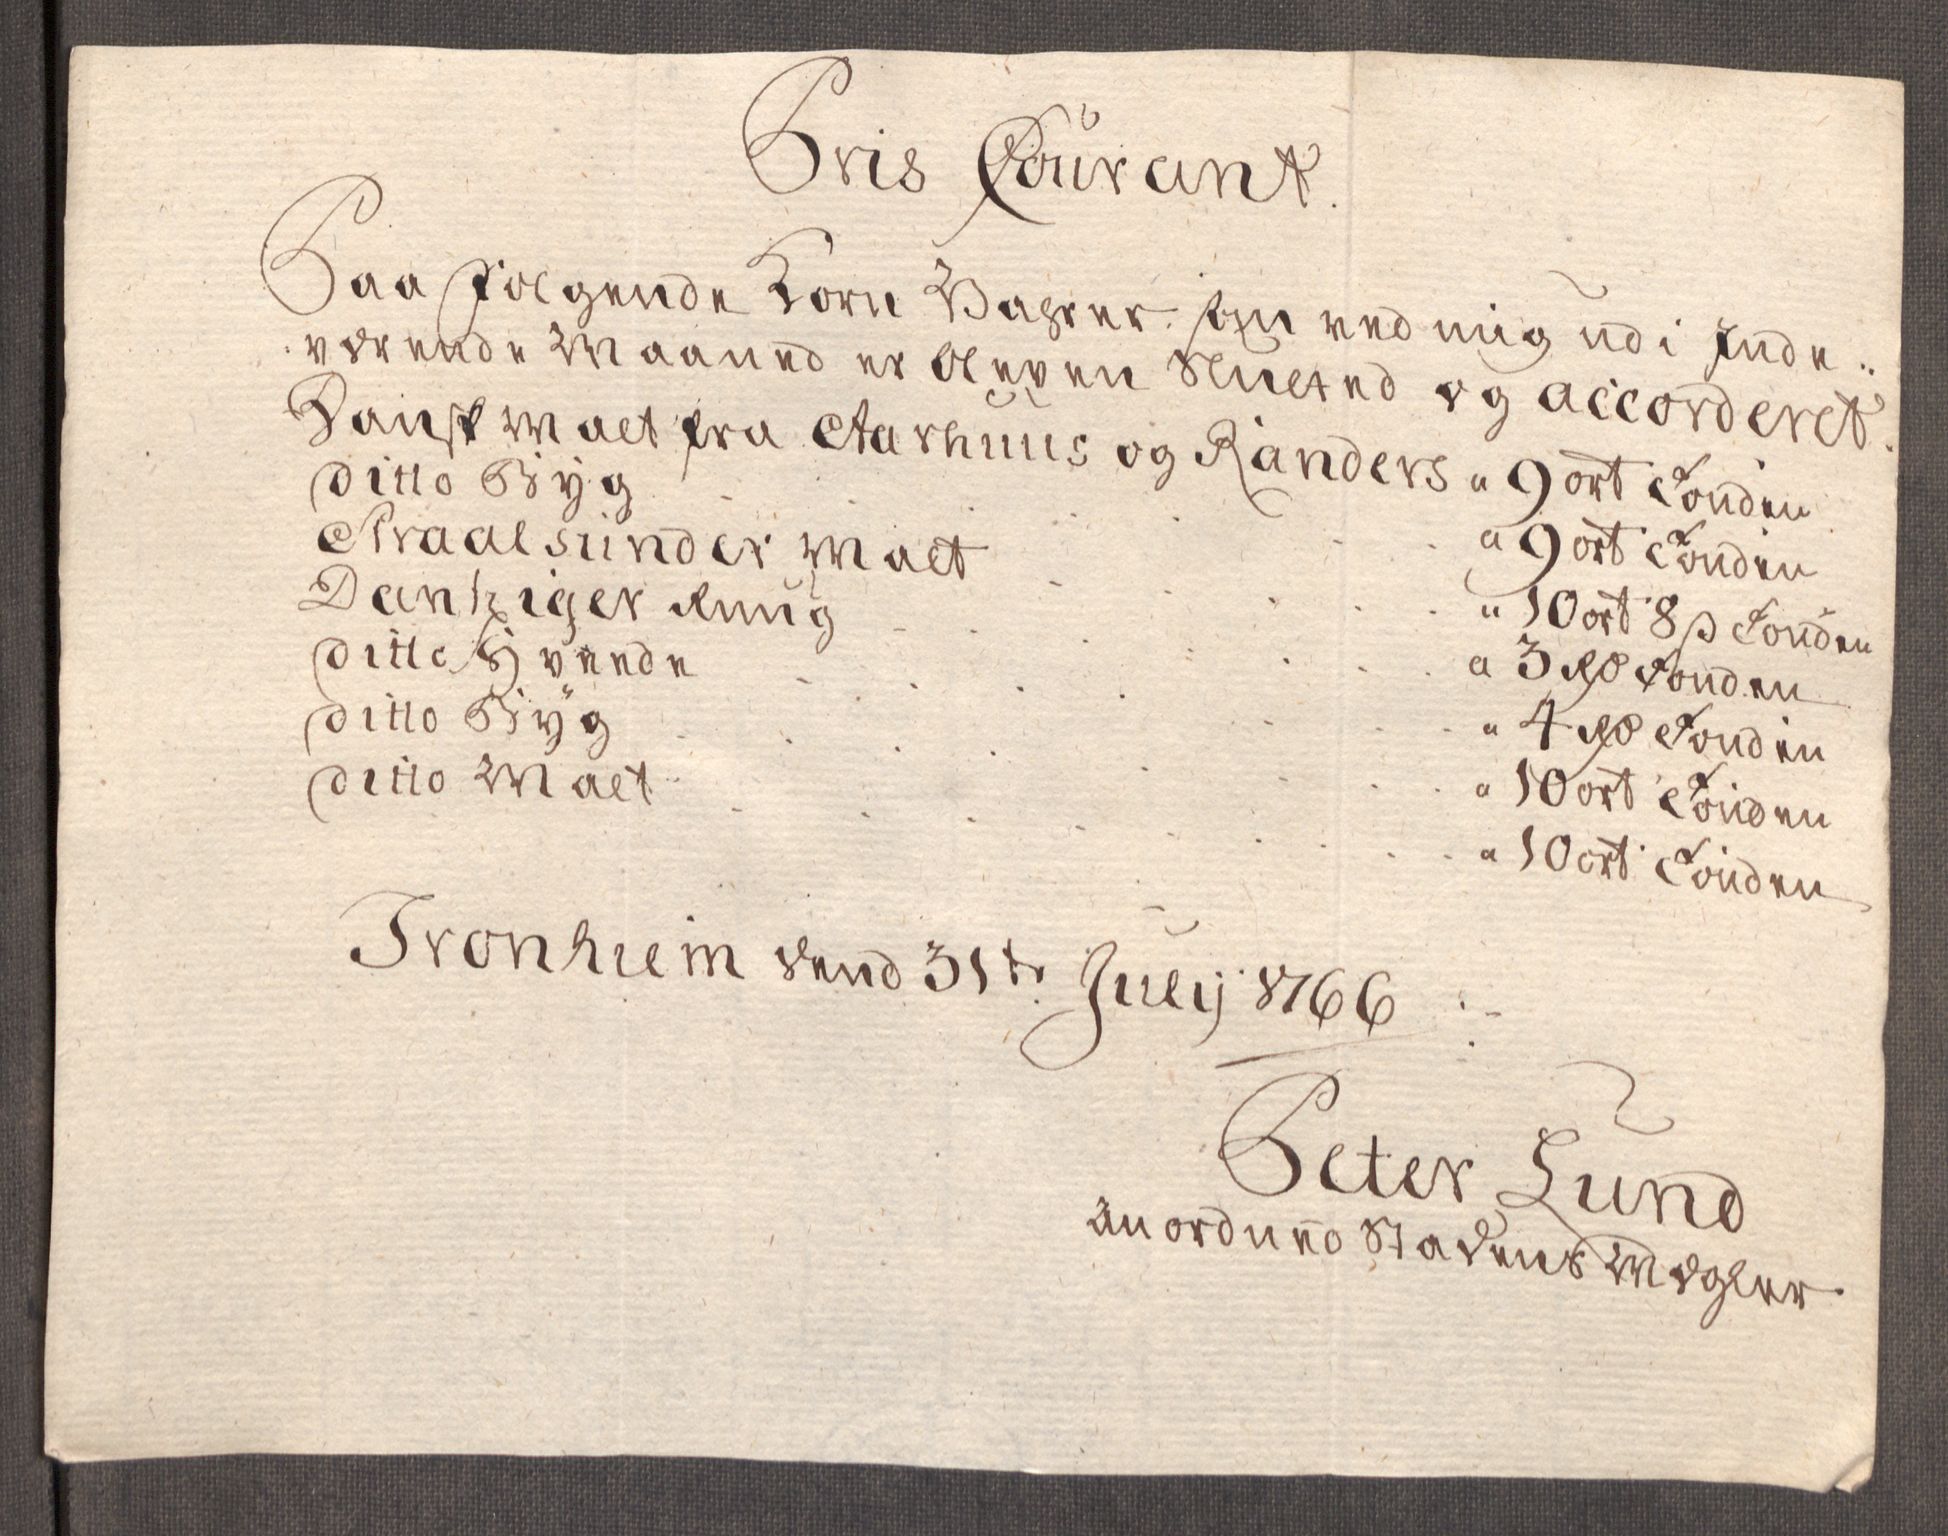 Pris Courant.
Paa følgende Korn Vahrer som ved mig udi Inde„
værende Maaned er bleven Slutted og accorderet.
Dansk Malt fra Aarhuus og Randers a 9 ort Tönden
ditto Byg a 9 ort Tönden
Straalsunder Malt a 10 ort 8 s Tönden
Dantziger Ruug a 3 Rd Tönden
ditto Hveede a 4 Rd Tönden
ditto Byg a 10 ort Tönden
ditto Malt a 10 ort Tönden
Tronhiem dend 31te July 1766
Peter Lund
anordned Stadens Mægler